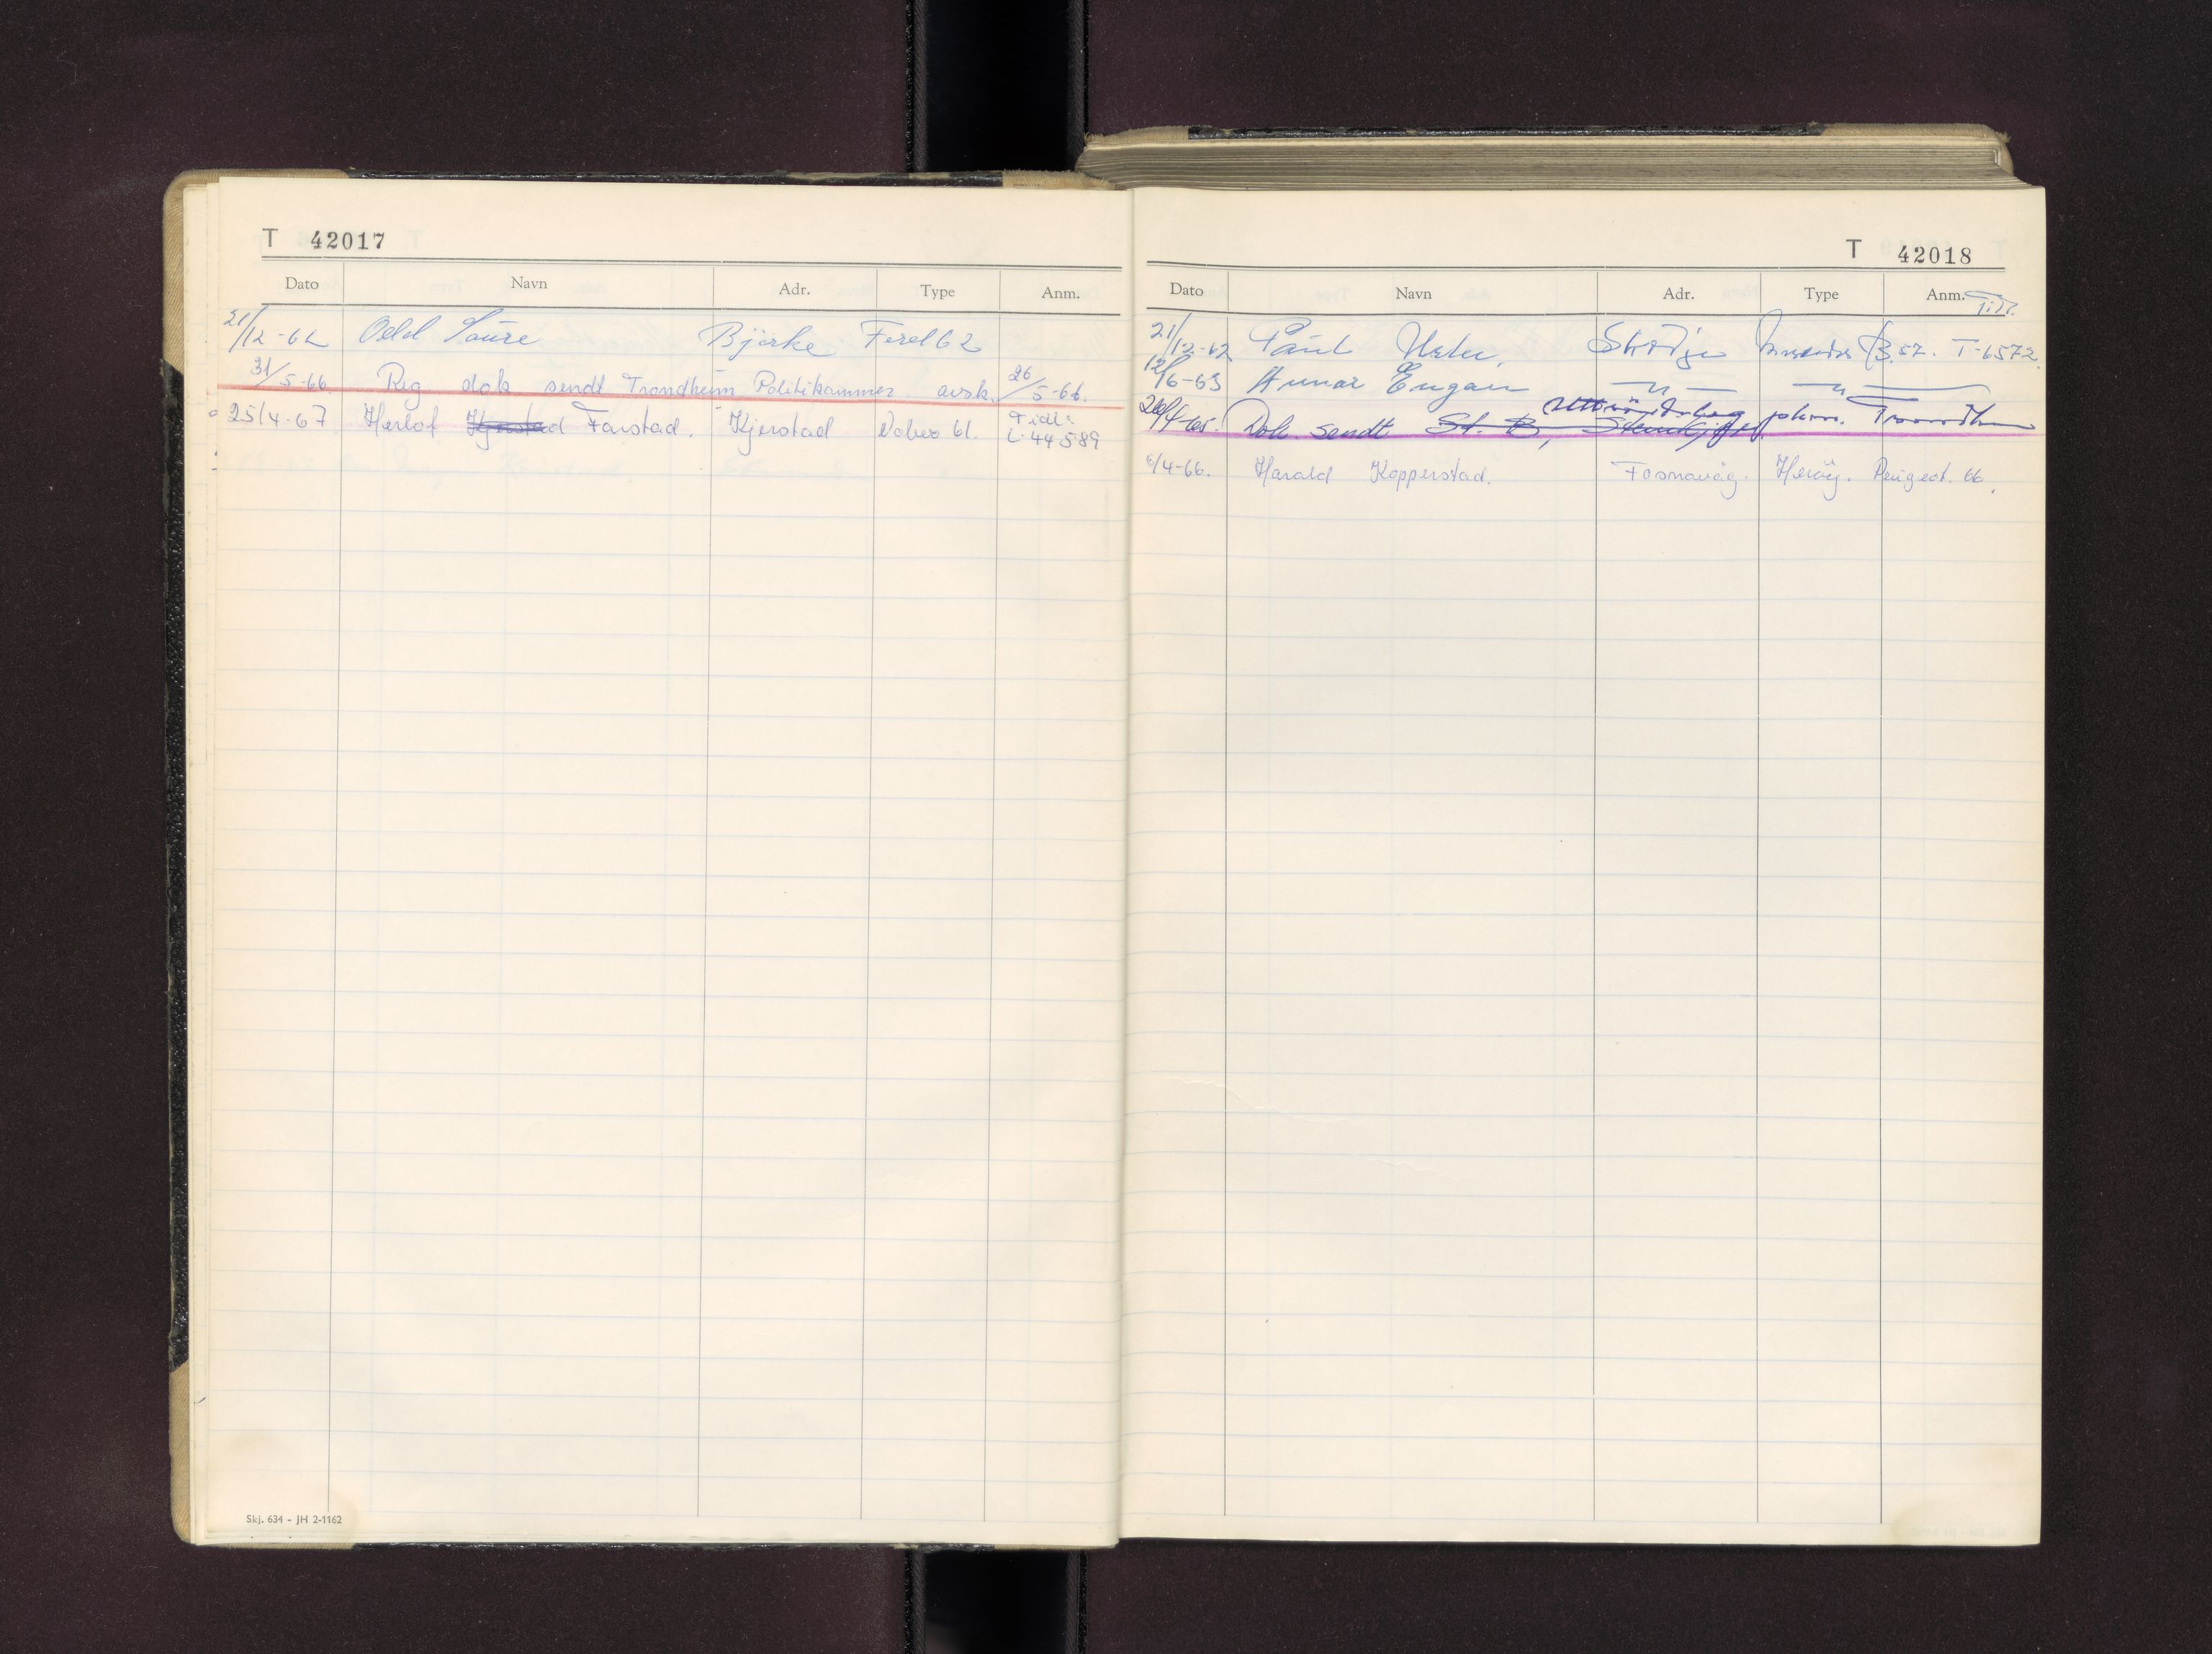 T 42017
Dato Navn Adr. Type Anm.
21/12-62 Odd Saure Bjørke Ford 62
31/5-66 Reg dok sendt Trondheim Politikammer avsk. 26/5-66.
25/4-67 Herlof Farstad. Kjerstad Volvo 61. Tidl: L-44589
Skj. 634 - JH 2-1162
T 42018
Dato Navn Adr. Type Anm. Tidl.
21/12-62 Paul Skodje 57. T-6572
12/6-63 Gunnar Engan — " — — " —
26/4-65. Dok. sendt St. B, Steinkjer
6/4-66. Harald Kopperstad. Fosnavåg. Herøy. Peugeot. 66.